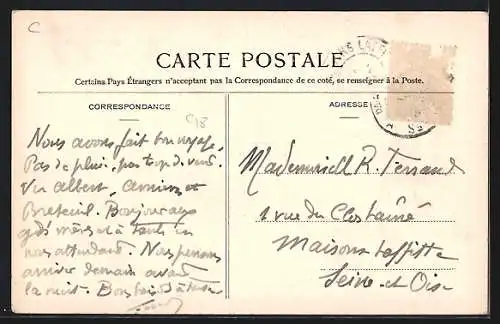 C
CARTE POSTALE
Certains Pays Étrangers n'acceptant pas la Correspondance de ce coté, se renseigner à la Poste.
CORRESPONDANCE
C18
Nous avons fait bon
Pas de pluie, pas trop de vent.
Vu Albert, Amiens et
Breteuil. Bonjour aux
gds mères et à tante en
nous attendant. Nous pensons
arriver demain avant
la nuit. Bons baisers à
ADRESSE
Mademoiselle R. Ferrand
1 rue du Clos
Maisons Laffitte
Seine-et-Oise